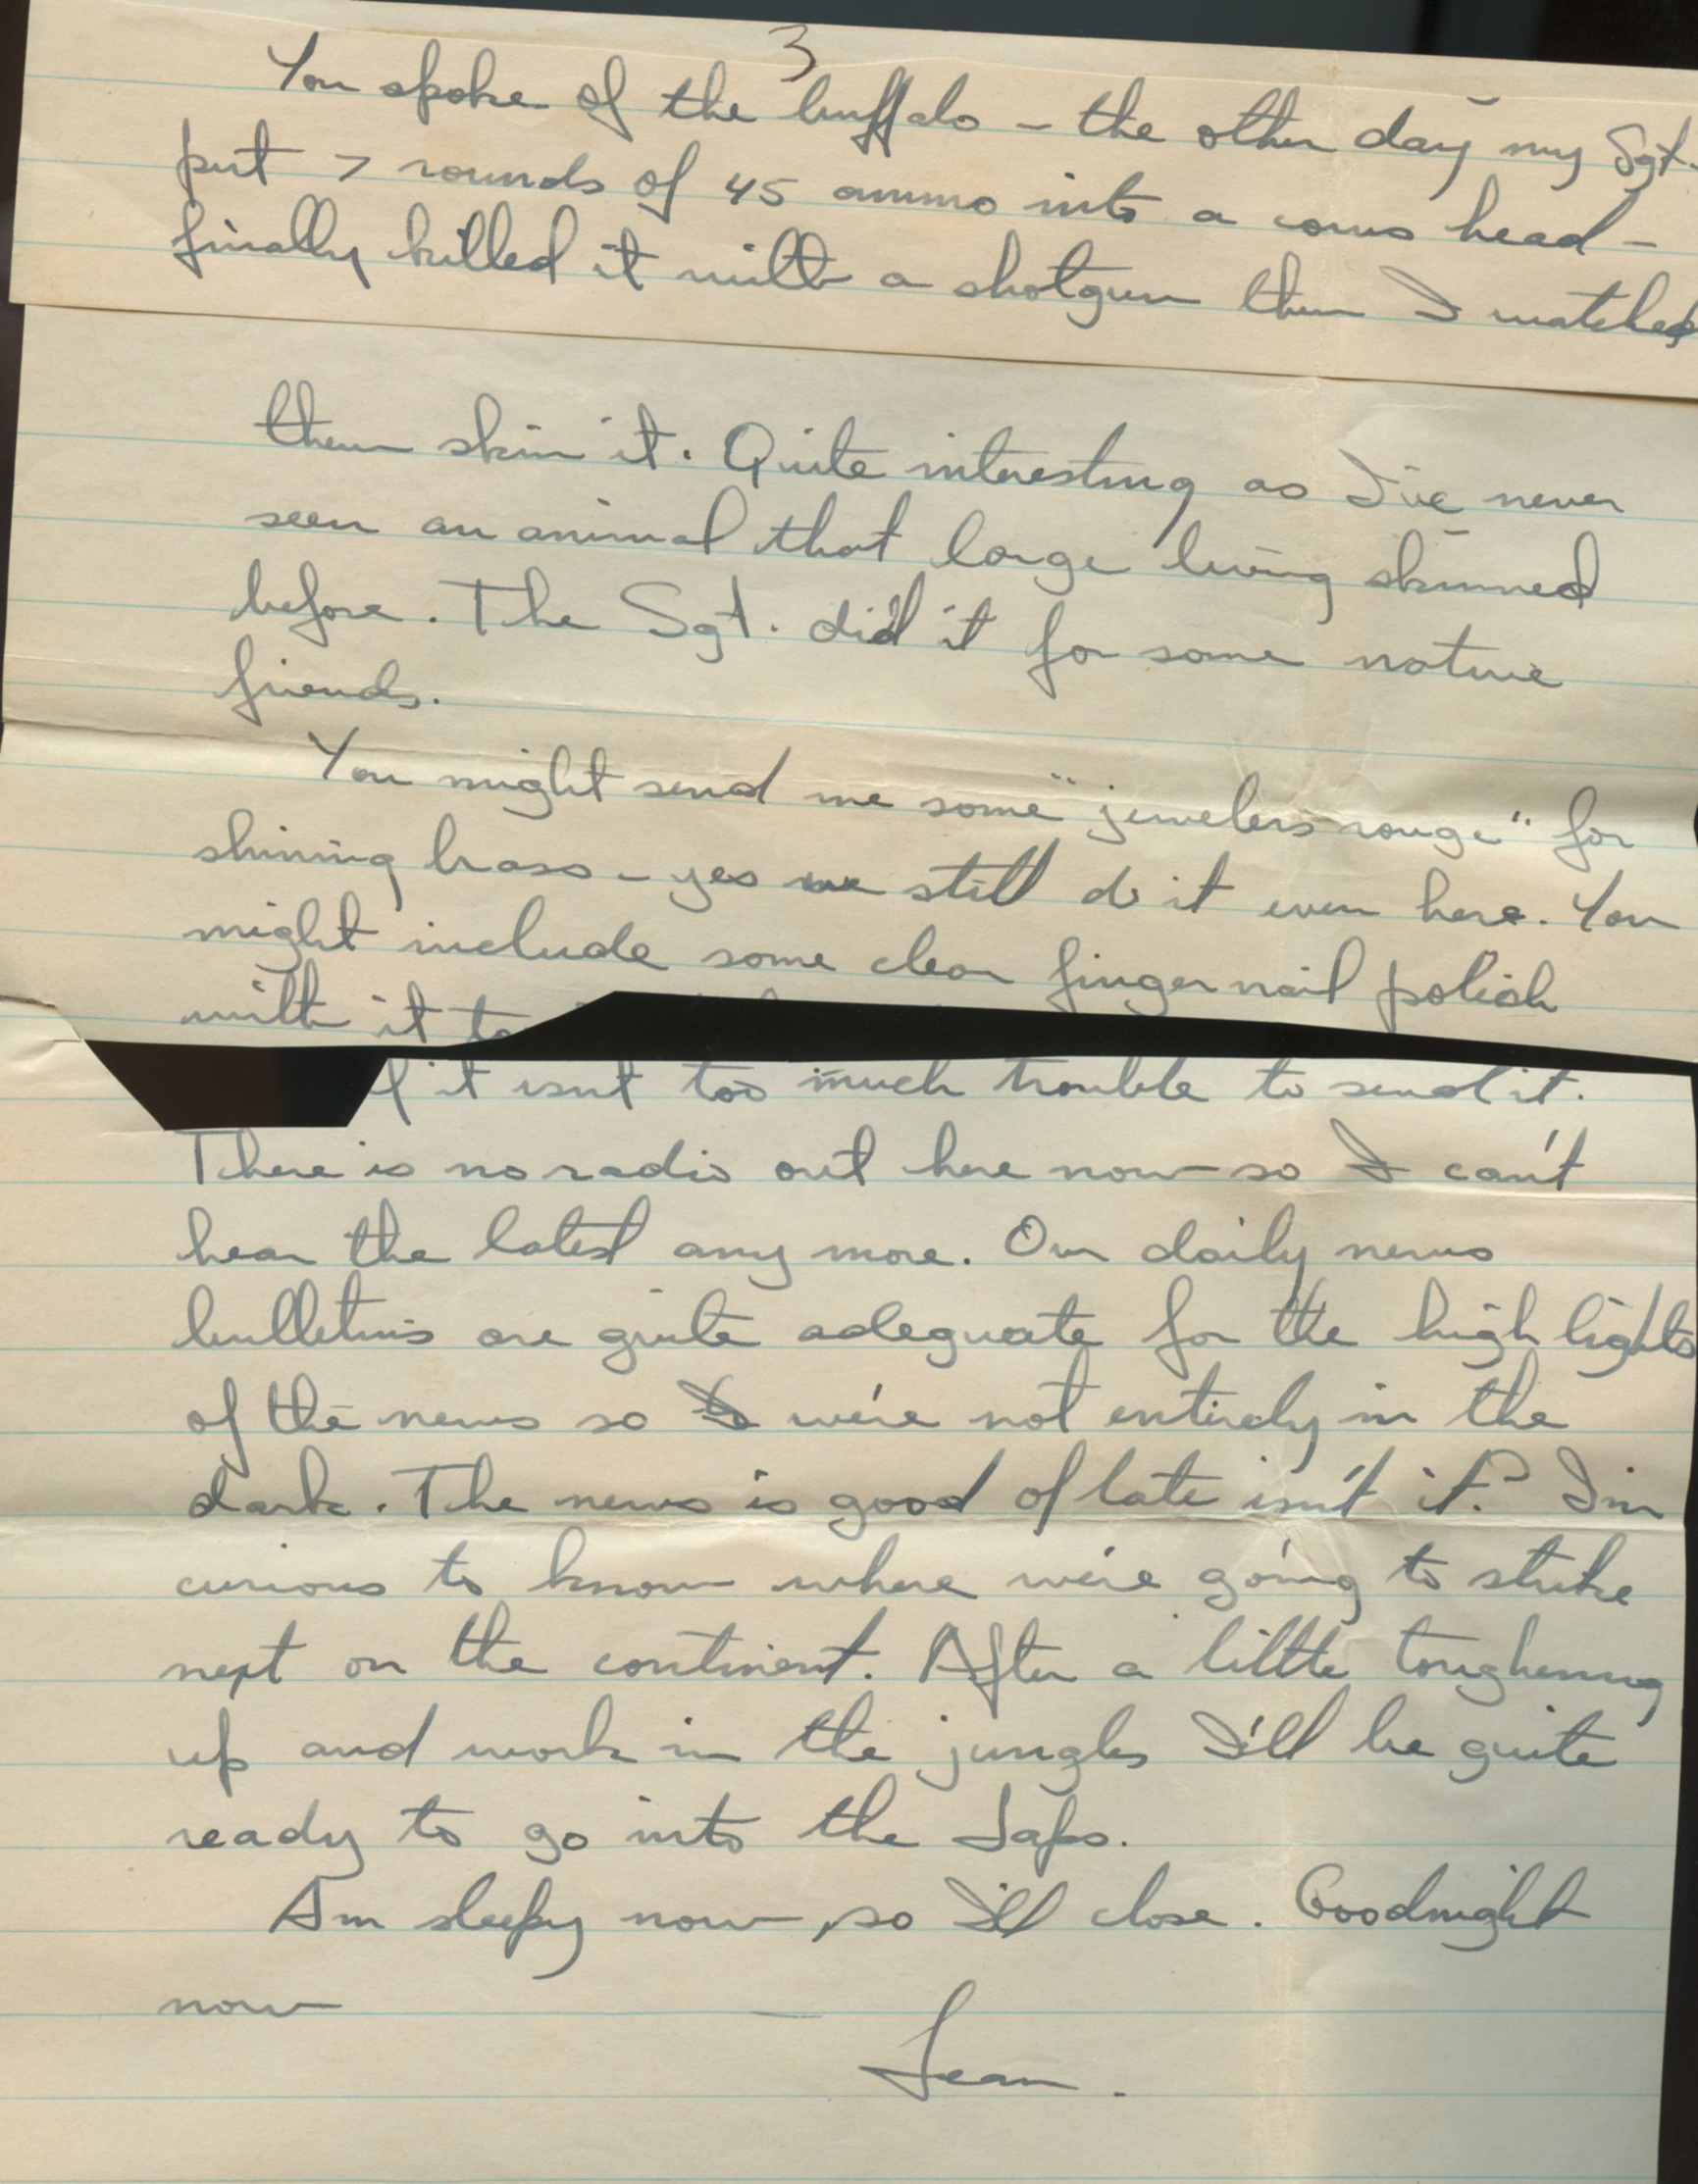 3
You spoke of the buffalo – the other day my Sgt.
put 7 rounds of 45 ammo into a cows head –
finally killed it with a shotgun then I watched
them skin it. Quite interesting as I've never
seen an animal that large being skinned
before. The Sgt. did it for some native
friends.
You might send me some "jewelers rouge" for
shining brass – yes we still do it even here. You
might include some clear finger nail polish
with it to
if it isnt too much trouble to send it.
There is no radio out here now so I can't
hear the latest any more. Our daily news
bulletins are quite adequate for the high lights
of the news so we're not entirely in the
dark. The news is good of late isn't it? I'm
curious to know where we're going to strike
next on the continent. After a little toughening
up and work in the jungles I'll be quite
ready to go into the Japs.
Am sleepy now, so I'll close. Goodnight
now —
Jean.